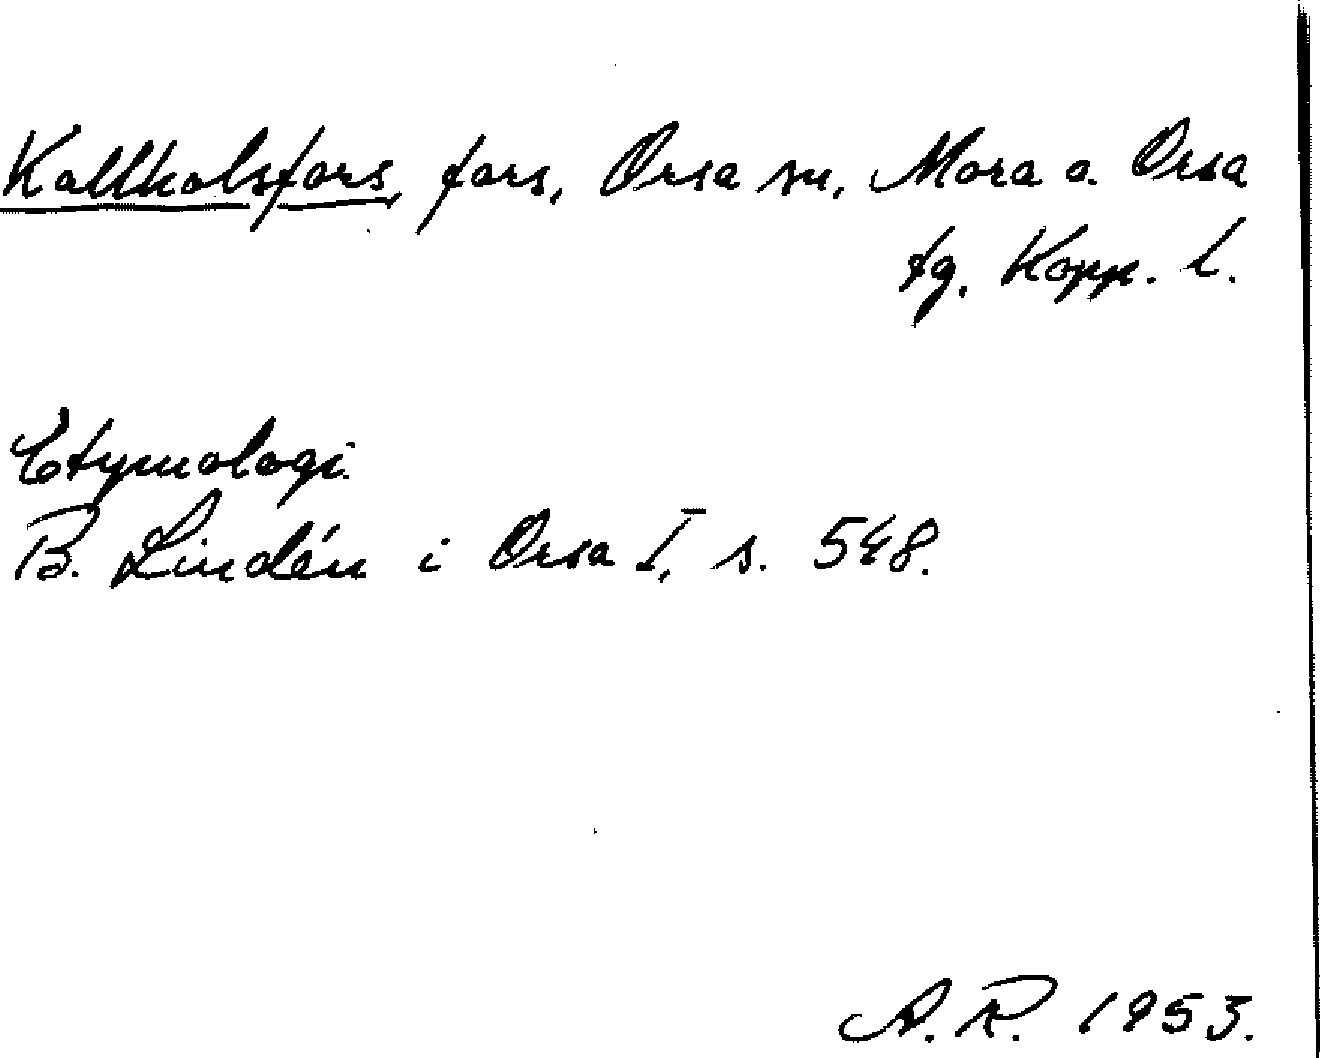 Kallholsfors, fors, Orsa sn, Mora o. Orsa
tg. Kopp. l.
Etymologi.
B. Lindén i Orsa I, s. 548.
A. R. 1953.